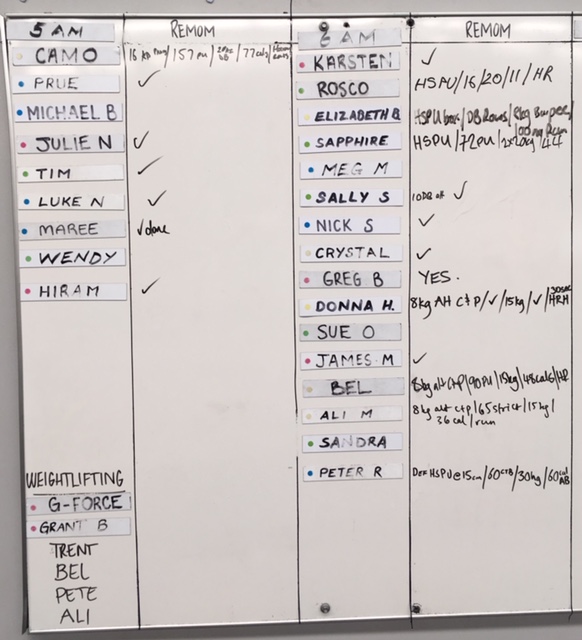 5 AM REMOM
CAMO 16 / 157 PU / / 77 cals /
PRUE ✓
MICHAEL B
JULIE N ✓
TIM ✓
LUKE N ✓
MAREE ✓ done
WENDY
HIRAM ✓
WEIGHTLIFTING
G-FORCE
GRANT B
TRENT
BEL
PETE
ALI
6 AM REMOM
KARSTEN ✓
ROSCO HSPU/16/20/11/HR
ELIZABETH B HSPU box/DB Rows/8kg Burpees/
100m Run
SAPPHIRE HSPU/72PU/2x20kg/44
MEG M
SALLY S 10DB alt ✓
NICK S ✓
CRYSTAL ✓
GREG B YES.
DONNA H. 8kg AH C+P/✓/15kg/✓/30sec HRH
SUE O
JAMES M ✓
BEL 8kg alt C+P/90PU/15kg/48cals/HR
ALI M 8kg alt c+p/65 strict/15kg/
36 cal/run
SANDRA
PETER R Def HSPU@15cm/60CTB/30kg/60cal AB